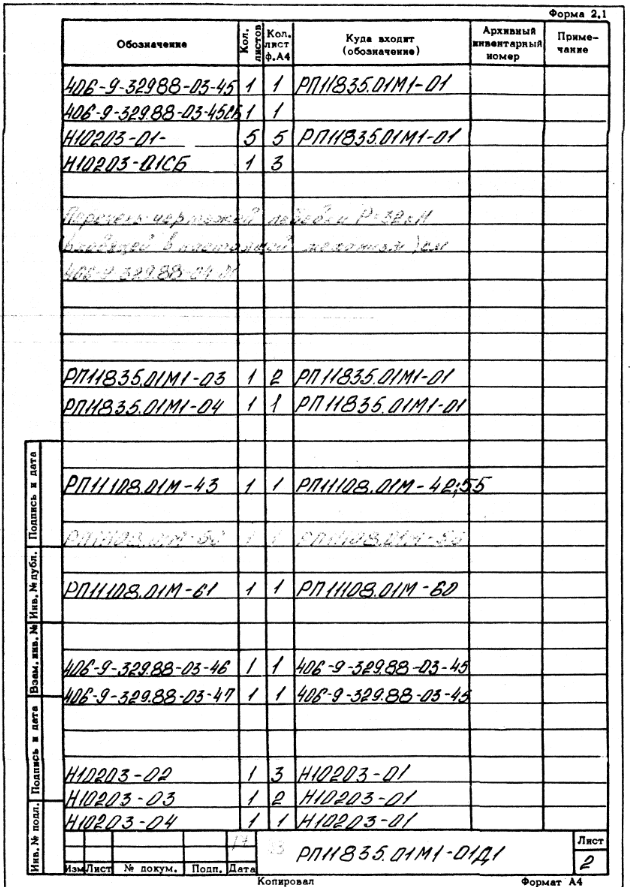 Форма 2,1
Обозначение Кол. листов Кол. лист ф.А4 Куда входит (обозначение) Архивный инвентарный номер Примечание
406-9-329.88-03-45 1 1 РП11835.01М1-01
406-9-329.88-03-45СБ 1 1
Н10203-01- 5 5 РП11835.01М1-01
Н10203-01СБ 1 3
Перечень чертежей лебедки
406-9-329.88-04
РП11835.01М1-03 1 2 РП11835.01М1-01
РП11835.01М1-04 1 1 РП11835.01М1-01
РП11108.01М-43 1 1 РП11108.01М-42;55
РП11108.01М-61 1 1 РП11108.01М-60
406-9-329.88-03-46 1 1 406-9-329.88-03-45
406-9-329.88-03-47 1 1 406-9-329.88-03-45
Н10203-02 1 3 Н10203-01
Н10203-03 1 2 Н10203-01
Н10203-04 1 1 Н10203-01
Подпись и дата
Инв. № дубл.
Взам. инв. №
Подпись и дата
Инв. № подл.
Изм Лист № докум. Подп. Дата
РП11835.01М1-01Д1
Лист
2
Копировал Формат А4